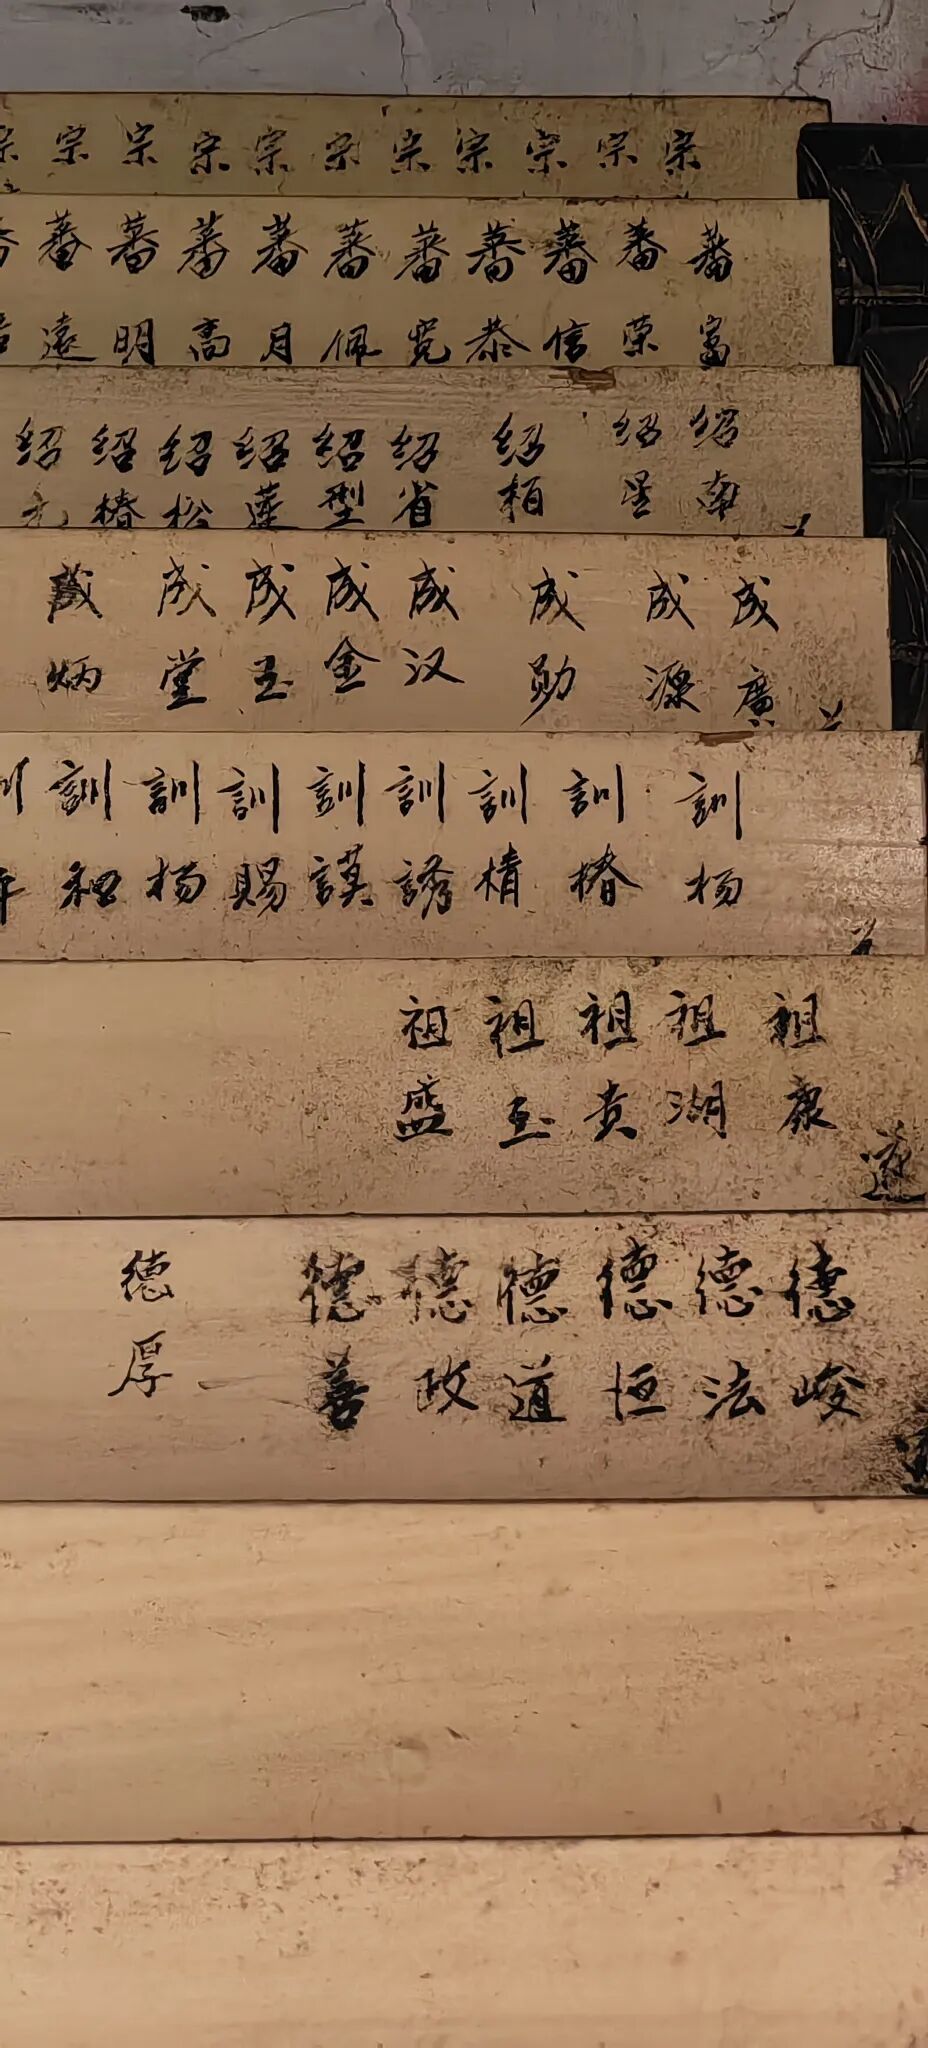 宗 宗 宗 宗 宗 宗 宗 宗 宗 宗 宗
蕃富 蕃荣 蕃信 蕃恭 蕃宽 蕃佩 蕃月 蕃高 蕃明 蕃遠
绍南 绍星 绍栢 绍省 绍型 绍莲 绍松 绍椿 绍
成廣 成源 成勋 成汉 成金 成玉 成堂 成炳
訓杨 訓椿 訓楕 訓誘 訓謨 訓賜 訓杨 訓和 訓
祖康 祖湖 祖贵 祖玉 祖盛
德峻 德法 德恒 德道 德政 德善 德厚